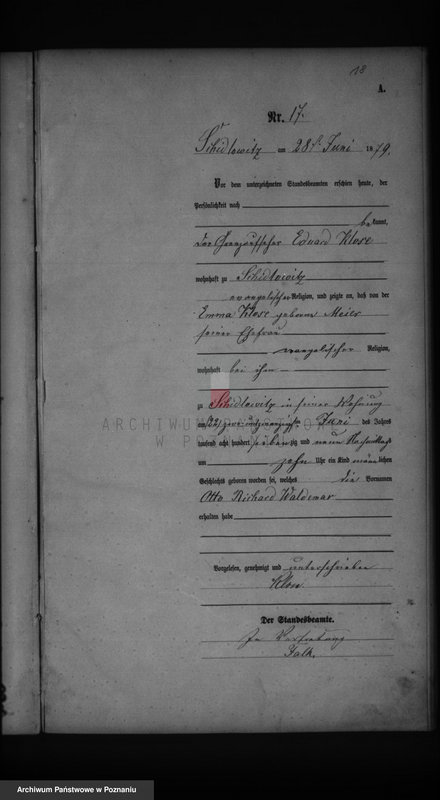 18
A.
Nr. 17.
Schidlowitz am 28t. Juni 1879.
Vor dem unterzeichneten Standesbeamten erschien heute, der
Persönlichkeit nach
bekannt,
der Eduard Klose
wohnhaft zu Schidlowitz
evangelischer Religion, und zeigte an, daß von der
Emma Klose geborne Meier
seiner Ehefrau
evangelischer Religion,
wohnhaft bei ihm
zu Schidlowitz in seiner Wohnung
am zweiundzwanzigst. Juni des Jahres
tausend acht hundert siebenzig und neun Nachmittags
um zehn Uhr ein Kind männlichen
Geschlechts geboren worden sei, welches die Vornamen
Otto Richard Waldemar
erhalten habe
Vorgelesen, genehmigt und unterschrieben
Klose
Der Standesbeamte.
In Vertretung
Falk.
ARCHIWUM PAŃSTWOWE
W POZNANIU
Archiwum Państwowe w Poznaniu